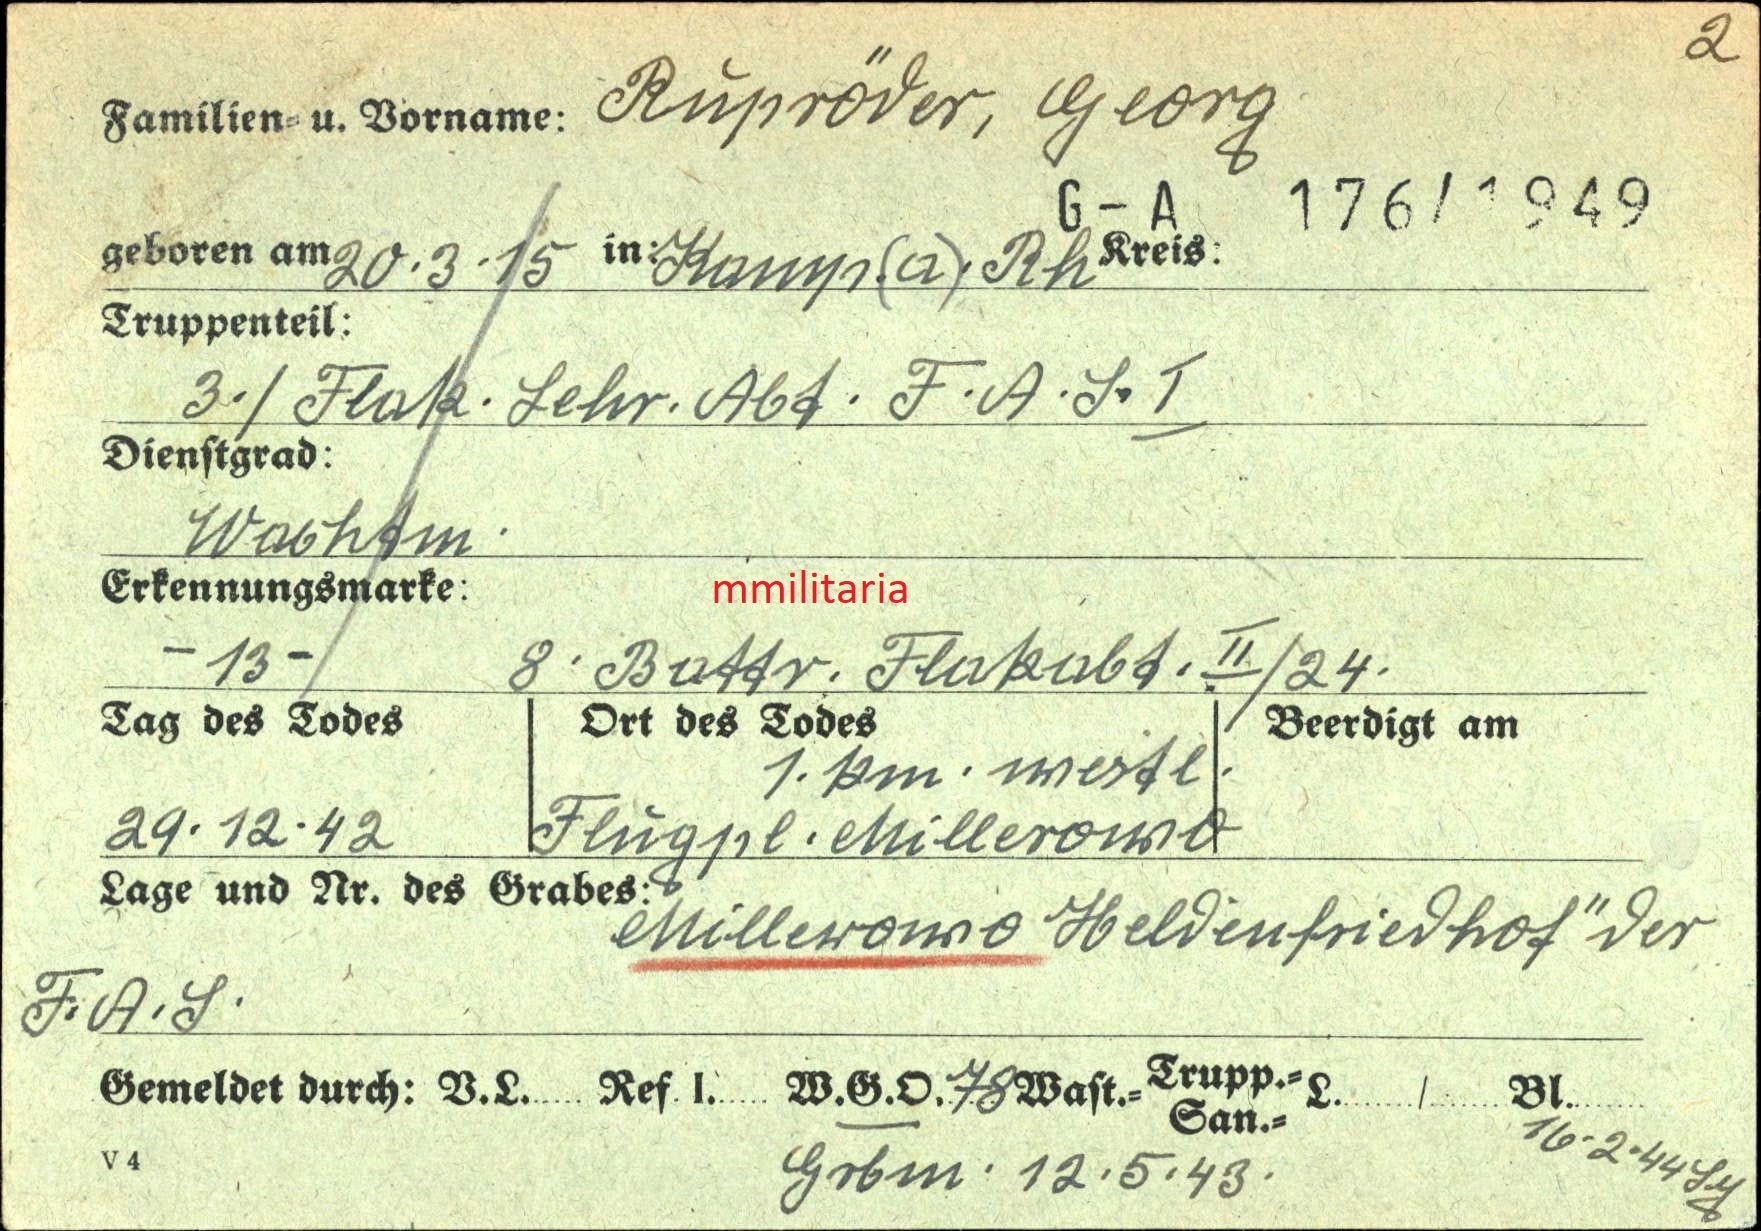 2
Familien- u. Vorname: Rupröder, Georg
G-A 176/1949
geboren am 20.3.15 in: Kamp.(a). Rh Kreis:
Truppenteil:
3./ Flak. Lehr. Abt. F.A.S. I
Dienstgrad:
Wachtm.
Erkennungsmarke:
mmilitaria
-13- 8. Battr. Flakabt. II/24.
Tag des Todes Ort des Todes Beerdigt am
1. km. westl.
29.12.42 Flugpl. Millerowo
Lage und Nr. des Grabes:
Millerowo Heldenfriedhof" der
F.A.S.
Gemeldet durch: V.L...... Ref. I...... W.G.O. 78 Wast.= Trupp.= L......../........ Bl.........
San.=
16.2.44
V 4
Grbm. 12.5.43.